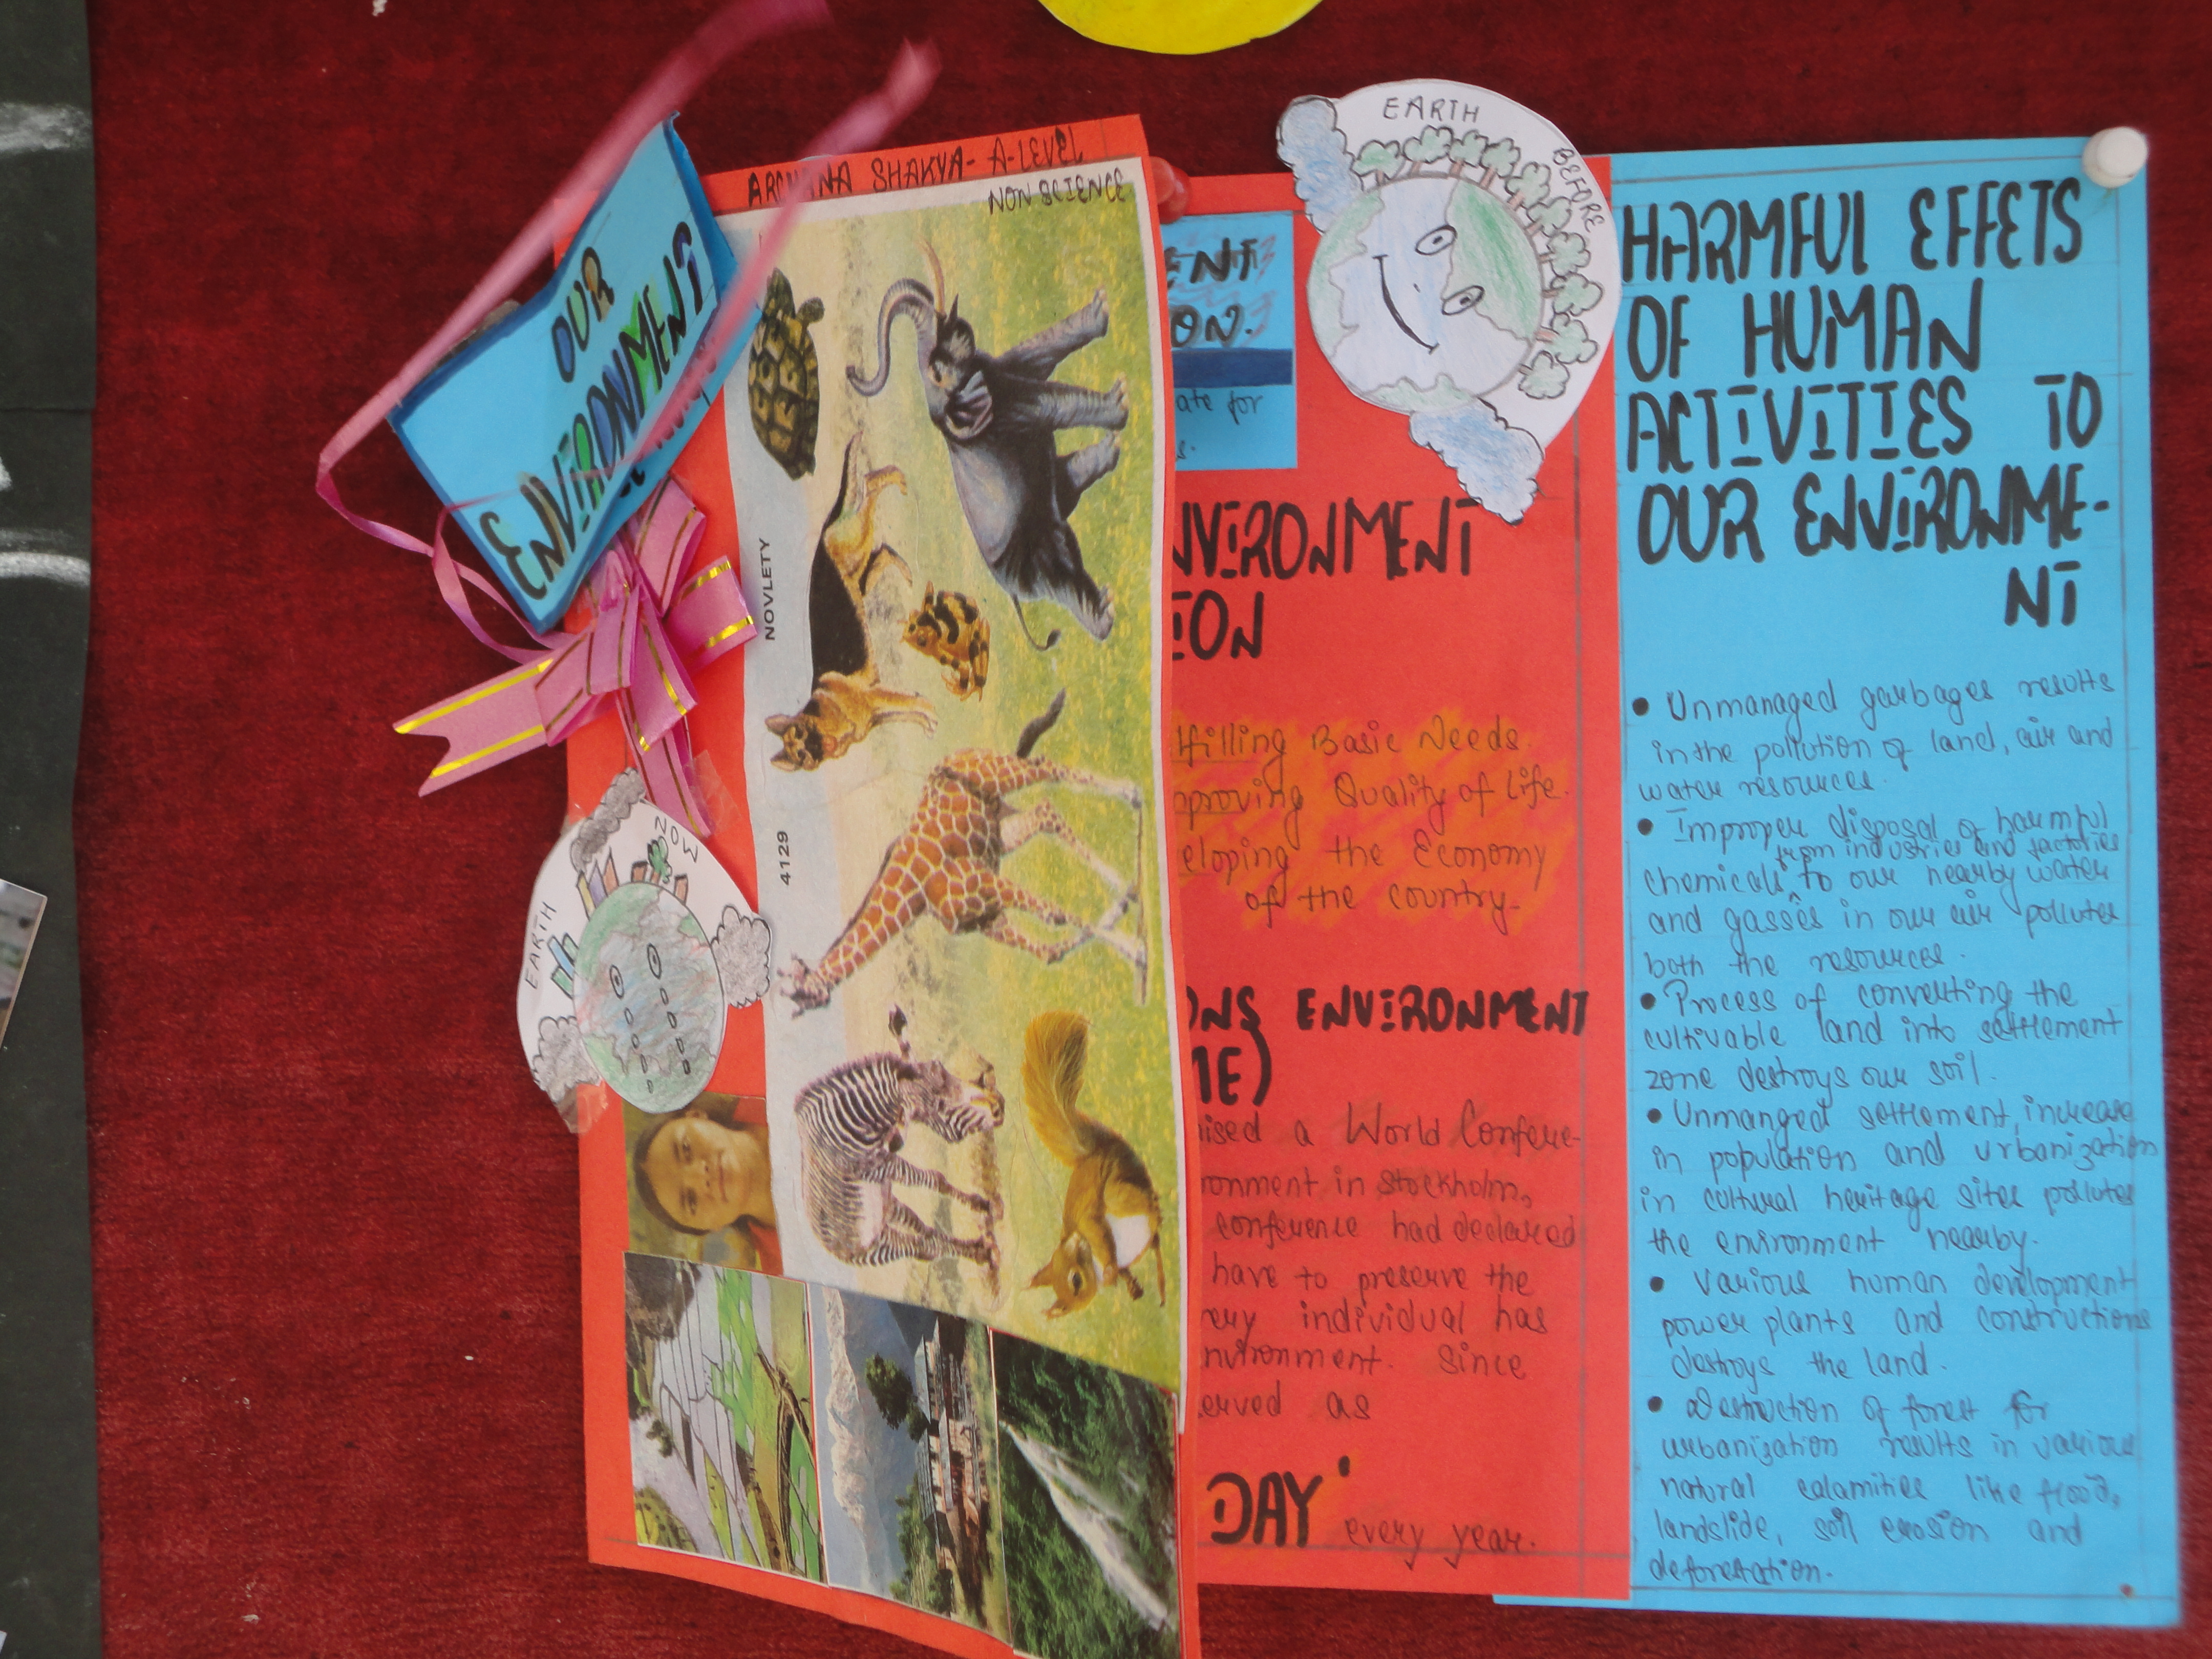 OUR
ENVIRONMENT
SHAKYA- A-LEVEL
NON SCIENCE
NOVLETY
4129
EARTH
NOW
ENT
ON.
ate for
s.
EARTH
BEFORE
NVIRONMENT
ION
lfilling Basic Needs.
mproving Quality of Life.
eloping the Economy
of the country.
ONS ENVIRONMENT
ME)
nised a World Confere-
ronment in Stockholm,
conference had declared
have to preserve the
very individual has
nvironment. Since
served as
DAY'
every year.
HARMFUL EFFETS
OF HUMAN
ACTIVITIES TO
OUR ENVIRONME-
NT
• Unmanaged garbages results
in the pollution of land, air and
water resources.
• Improper disposal of harmful
from industries and factories
chemicals ^ to our nearby water
and gasses in our air pollutes
both the resources.
• Process of converting the
cultivable land into settlement
zone destroys our soil.
• Unmanged settlement, increase
in population and urbanization
in cultural heritage sites pollutes
the environment nearby.
• Various human development
power plants and constructions
destroys the land.
• Destruction of forest for
urbanization results in various
natural calamities like flood,
landslide, soil erosion and
deforestation.